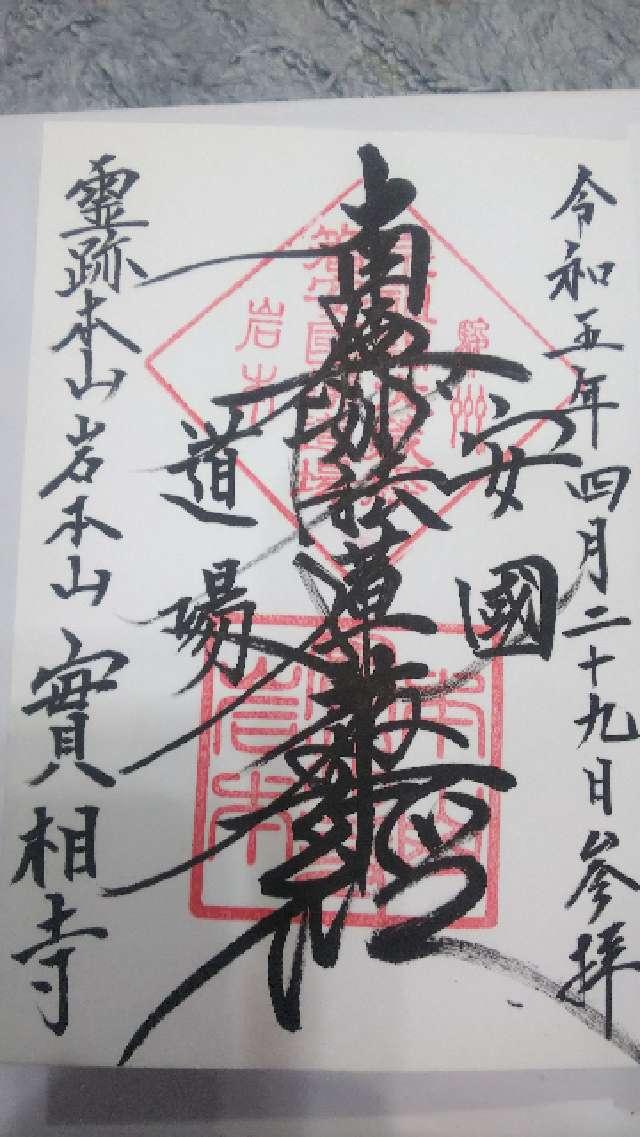 令和五年四月二十九日参拝
安國
南無妙法蓮華経
道場
霊跡本山岩本山實相寺
駿州
岩本